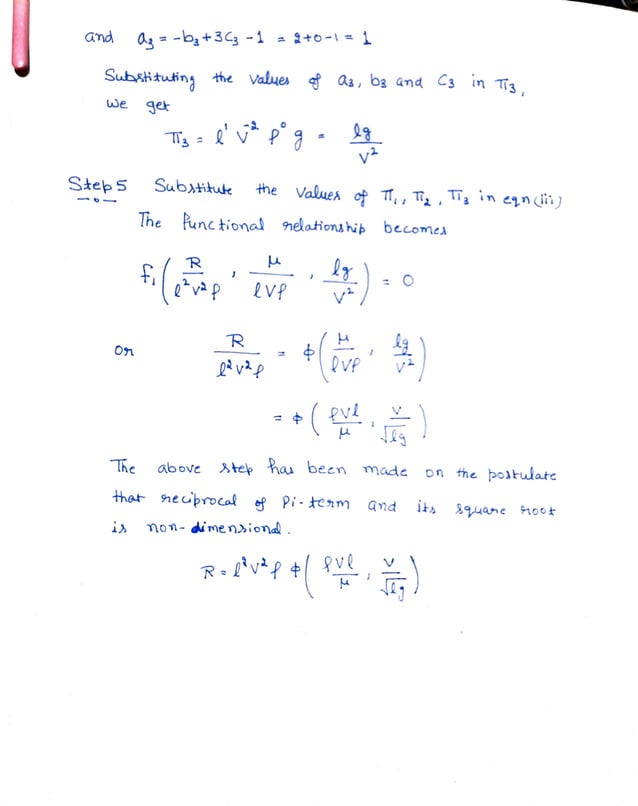 and a₃ = -b₃ + 3c₃ - 1 = 2+0-1 = 1
Substituting the values of a₃, b₃ and C₃ in π₃,
we get
π₃ = l¹ V⁻² ρ⁰ g = lg/V²
Step 5 Substitute the values of π₁, π₂, π₃ in eqn (iii)
The functional relationship becomes
f₁ ( R/(l²V²ρ) , μ/(lVρ) , lg/V² ) = 0
or R/(l²V²ρ) = φ ( μ/(lVρ) , lg/V² )
= φ ( ρVl/μ , V/√lg )
The above step has been made on the postulate
that reciprocal of Pi-term and its square root
is non-dimensional.
R = l²V²ρ φ ( ρVl/μ , V/√lg )